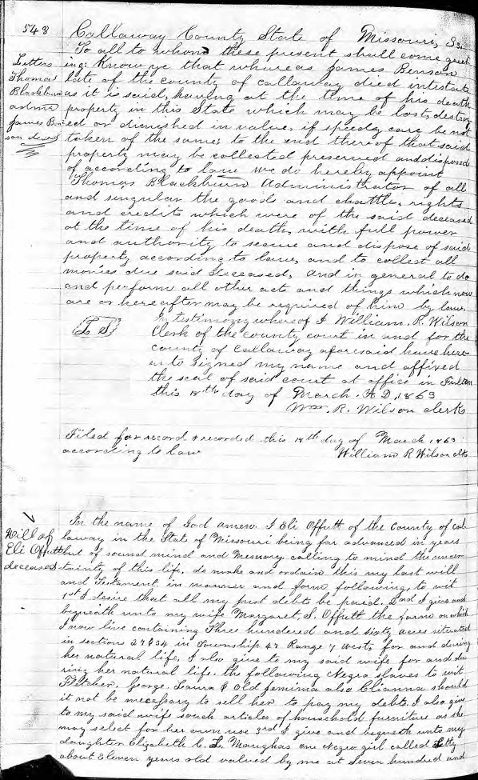 543
Callaway County State of Missouri, Sc.
To all to whom these present shall come greet
ing: Know ye that whereas James Benson
late of the county of Callaway died intestate
as it is said, having at the time of his death
property in this State which may be lost, destroy
ed or diminished in value, if speedy care be not
taken of the same; to the end thereof that said
property may be collected preserved and disposed
of according to law we do hereby appoint
Thomas Blackburn Administrator of all
and singular the goods and chattles, rights
and credits which were of the said deceased
at the time of his death, with full power
and authority to secure and dispose of said
property according to law, and to collect all
monies due said deceased, and in general to do
and perform all other acts and things which now
are or hereafter may be required of him by law.
Letters
Thomas
Blackburn
admr
James Ben
son decd
L S
In testimony whereof I William R. Wilson
Clerk of the county court in and for the
county of Callaway aforesaid have here
unto signed my name and affixed
the seal of said court at office in Fulton
this 18th day of March A.D. 1863
Wm. R. Wilson clerk
Filed for record & recorded this 18th day of March 1863
according to law
William R Wilson clk
Will of
Eli Offutt
deceased
In the name of God amen. I Eli Offutt of the County of Cal
laway in the State of Missouri being far advanced in years
but of sound mind and Memory calling to mind the uncer
tainty of this life, do make and ordain this my last will
and Testament in manner and form following, to wit
1st I desire that all my just debts be paid. 2nd I give and
bequeith unto my wife Margaret S. Offutt the farm on which
I now live containing Three hundered and sixty acres situated
in section 27 & 34 in Township 47 Range 7 West for and during
her natural life, I also give to my said wife for and du
ring her natural life, the following Negro slaves to wit
Fletcher, George, Laura & Old Jemima also should
it not be necessary to sell her to pay my debts. I also give
to my said wife such articles of household furniture as she
may select for her own use 3rd I give and bequeth unto my
daughter Elizabeth C. L. Maughas one Negro girl called
about Eleven years old valued by me at Seven hundred and